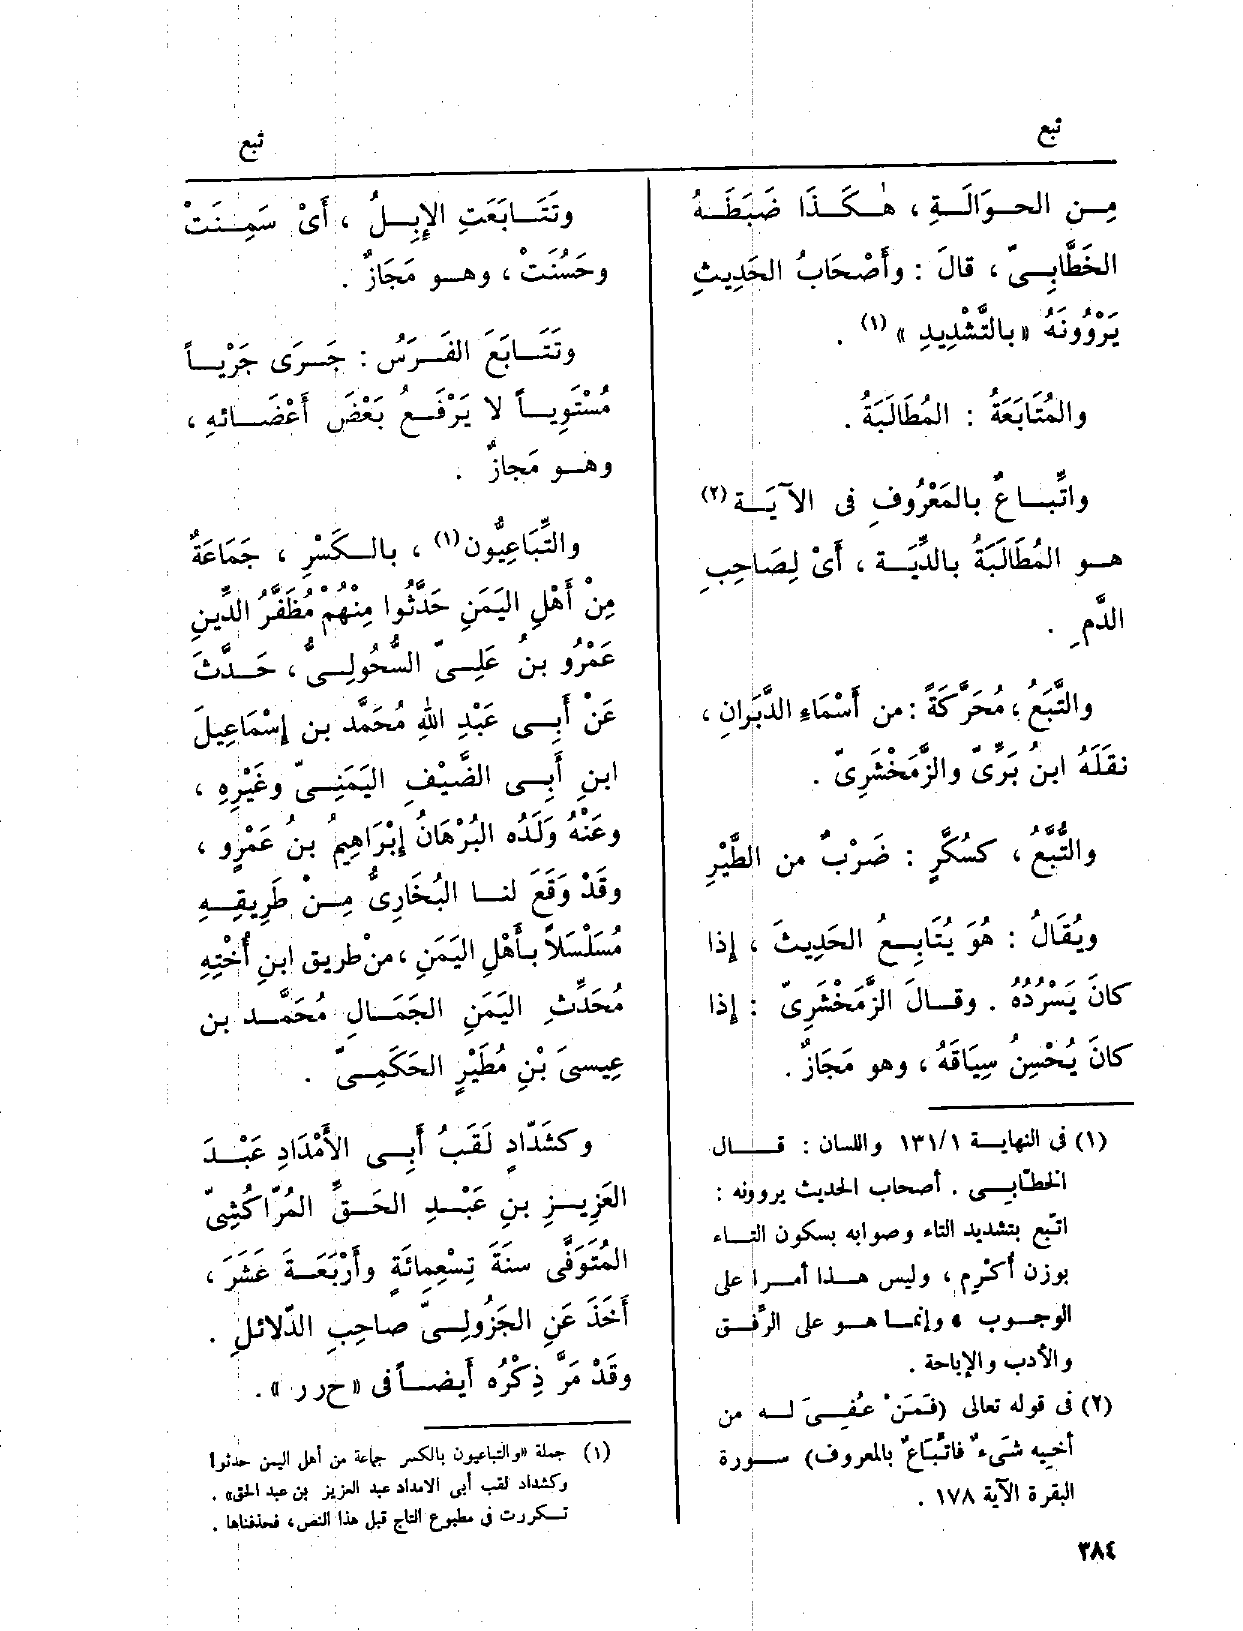 تبع
تبع
مِـن الحـوَالَـةِ ، هٰـكَـذَا ضَبَطَـهُ
الخَطَّابِـىّ ، قالَ : وأَصْحَابُ الحَدِيثِ
يَرْوُونَهُ «بالتَّشْدِيدِ » (١) .
والمُتَابَعَةُ : المُطَالَبَةُ .
واتِّبـاعٌ بالمَعْرُوفِ فى الآيَـة (٢)
هـو المُطَالَبَةُ بالدِّيَـة ، أَىْ لِصَاحِبِ
الدَّمِ .
والتَّبَعُ ، مُحَرَّكَةً : من أَسْمَاءِ الدَّبَرانِ ،
نقَلَهُ ابنُ بَرِّىّ والزَّمَخْشَرِىّ .
والتُّبَّعُ ، كسُكَّرٍ : ضَرْبٌ من الطَّيْرِ
ويُقَالُ : هُوَ يُتَابِـعُ الحَدِيثَ ، إِذا
كانَ يَسْرُدُهُ . وقـالَ الزَّمَخْشَرِىّ : إِذا
كانَ يُحْسِنُ سِيَاقَهُ ، وهو مَجَازٌ .
(١) فى النهايـة ١٣١/١ واللسان : قـــال
الخطّابـى . أصحاب الحديث يروونه :
اتّبع بتشديد التاء وصوابه بسكون التـاء
بوزن أكْرِم ، وليس هـذا أمـرا على
الوجـوب ، وإنمـا هـو على الرِّفـق
والأدب والإباحة .
(٢) فى قوله تعالى (فَمَنْ عُفِـىَ لـه من
أخيه شَىءٌ فاتِّبَاعٌ بالمعروف) سـورة
البقرة الآية ١٧٨ .
وتَتَـابَعَتِ الإِبِـلُ ، أَىْ سَمِـنَتْ
وحَسُنَتْ ، وهـو مَجَازٌ .
وتَتَـابَعَ الفَـرَسُ : جَـرَى جَرْيـاً
مُسْتَوِيـاً لا يَرْفَـعُ بَعْضَ أَعْضَـائهِ ،
وهـو مَجازٌ .
والتِّبَاعِيُّون(١) ، بالـكَسْرِ ، جَمَاعَةٌ
مِنْ أَهْلِ اليَمَنِ حَدَّثُوا مِنْهُمْ مُظَفَّرُ الدِّينِ
عَمْرُو بنُ عَلِـىّ السُّحُولِـىُّ ، حَـدَّثَ
عَنْ أَبِـى عَبْدِ اللهِ مُحَمَّد بن إِسْمَاعِيلَ
ابنِ أَبِـى الضَّيْفِ اليَمَنِـىّ وغَيْرِهِ ،
وعَنْهُ وَلَدُه البُرْهَانُ إِبْرَاهِيمُ بنُ عَمْرٍو ،
وقَدْ وَقَعَ لنـا البُخَارِىُّ مِـنْ طَرِيقِـهِ
مُسَلْسَلاً بـأَهْلِ اليَمَنِ ، منْ طريق ابنِ أُخْتِهِ
مُحَدِّثِ اليَمَنِ الجَمَـالِ مُحَمَّـد بن
عِيسىَ بْنِ مُطَيْرٍ الحَكَمِـىّ .
وكشَدّادٍ لَقَبُ أَبِـى الأَمْدَادِ عَبْـدَ
العَزِيـزِ بنِ عَبْـدِ الحَـقِّ المُرّاكُشِىّ
المُتَوَفَّى سنَةَ تِسْعِمِائَةٍ وأَرْبَعَـةَ عَشَرَ ،
أَخَذَ عَنِ الجَزُولِـىّ صاحِبِ الدّلائلِ .
وقَدْ مَرَّ ذِكْرُه أَيضـاً فى «ح ر ر » .
(١) جملة «والتباعيون بالكسر جماعة من أهل اليمن حدثوا
وكشداد لقب أبى الامداد عبد العزيز بن عبد الحق» .
تـكررت فى مطبوع التاج قبل هذا النص، فحذفناها .
٣٨٤